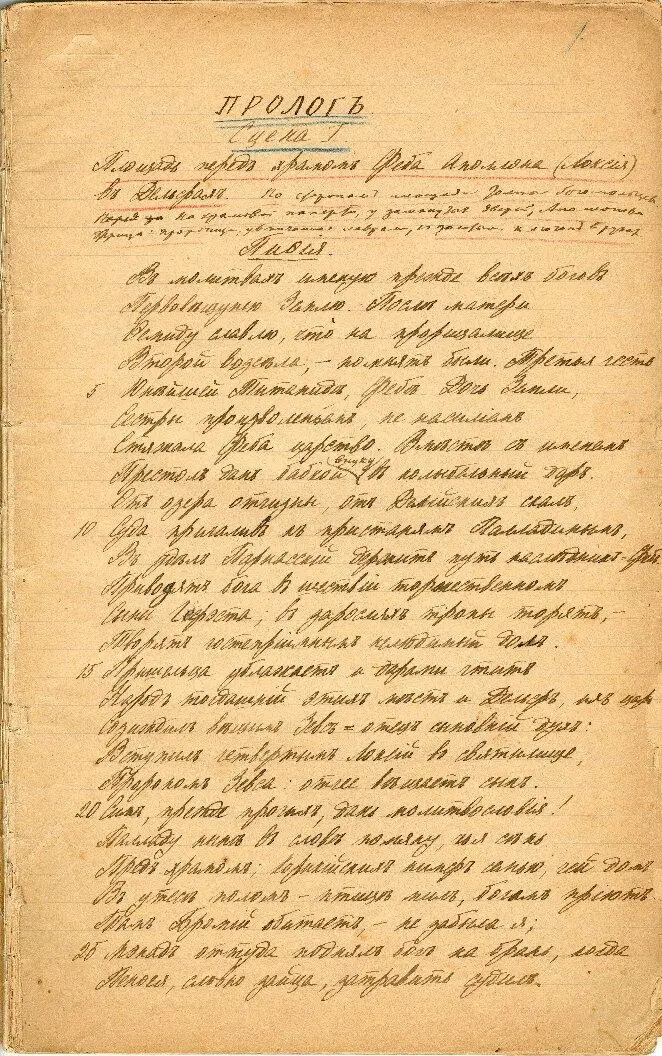 1.
ПРОЛОГЪ
Сцена I
Площадь передъ храмомъ Феба Аполлона (Локсія)
въ Дельфахъ. По ступенямъ площади толпа богомольцевъ
на храмовой паперти, у замкнутыхъ дверей,
жрица пророчица, увѣнчанная лавромъ, съ ключомъ въ рукахъ
Пиѳія.
Въ молитвахъ именую прежде всѣхъ боговъ
Первовѣщунью Землю. Послѣ матери
Ѳемиду славлю, что на прорицалище
Второй возсѣла, – помнятъ были. Третья честь
5 Юнѣйшей Титанидѣ, Фебѣ. Дочь Земли,
Сестры произволеньемъ, не насильемъ
Стяжала Феба царство. Вмѣстѣ съ именемъ
Престолъ данъ бабкой внуку въ колыбельный даръ.
Отъ озера отчизны, отъ Делійскихъ скалъ,
10 Суда причаливъ къ пристанямъ Палладинымъ,
Въ удѣлъ Парнасскій держитъ путь наслѣдникъ-Фебъ.
Приводятъ бога въ шествіи торжественномъ
Сыны Гефэста; въ заросляхъ тропы торятъ, –
Творятъ гостепріимнымъ нелюдимый долъ.
15 Пришельца ублажаетъ и дарами чтитъ
Народъ тогдашній этихъ мѣстъ и Дельфъ, ихъ царь
вѣщимъ Зевсъ-отецъ сыновній духъ:
Вступилъ четвертымъ Локсій во святилище,
Пророкомъ Зевса: отчее вѣщаетъ сынъ.
20 Симъ, прежде прочихъ, дань молитвословія!
Палладу нынѣ въ словѣ помяну, чья сѣнь
Предъ храмомъ; Корикійскихъ нимфъ семью, чей домъ
Въ утесѣ поломъ – птицѣ милъ, богамъ пріютъ.
Тамъ Бромій обитаетъ, – не забыла я;
25 Мэнадъ оттуда поднялъ богъ на брань, когда
Пенѳея, словно зайца, затравить судилъ.